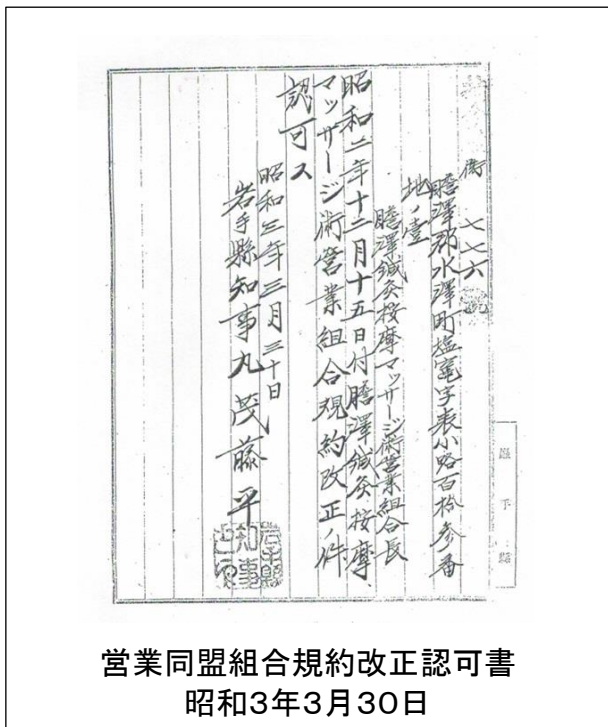 衛 七七六 號
膽澤郡水澤町塩竈字表小路百拾参番
地ノ壹
膽澤鍼灸按摩マッサージ術営業組合長
昭和二年十二月十五日付膽澤鍼灸按摩
マッサージ術営業組合規約改正ノ件
認可ス
昭和三年三月三十日
岩手縣知事丸茂藤平
岩手縣知事之印
岩手縣
営業同盟組合規約改正認可書
昭和3年3月30日